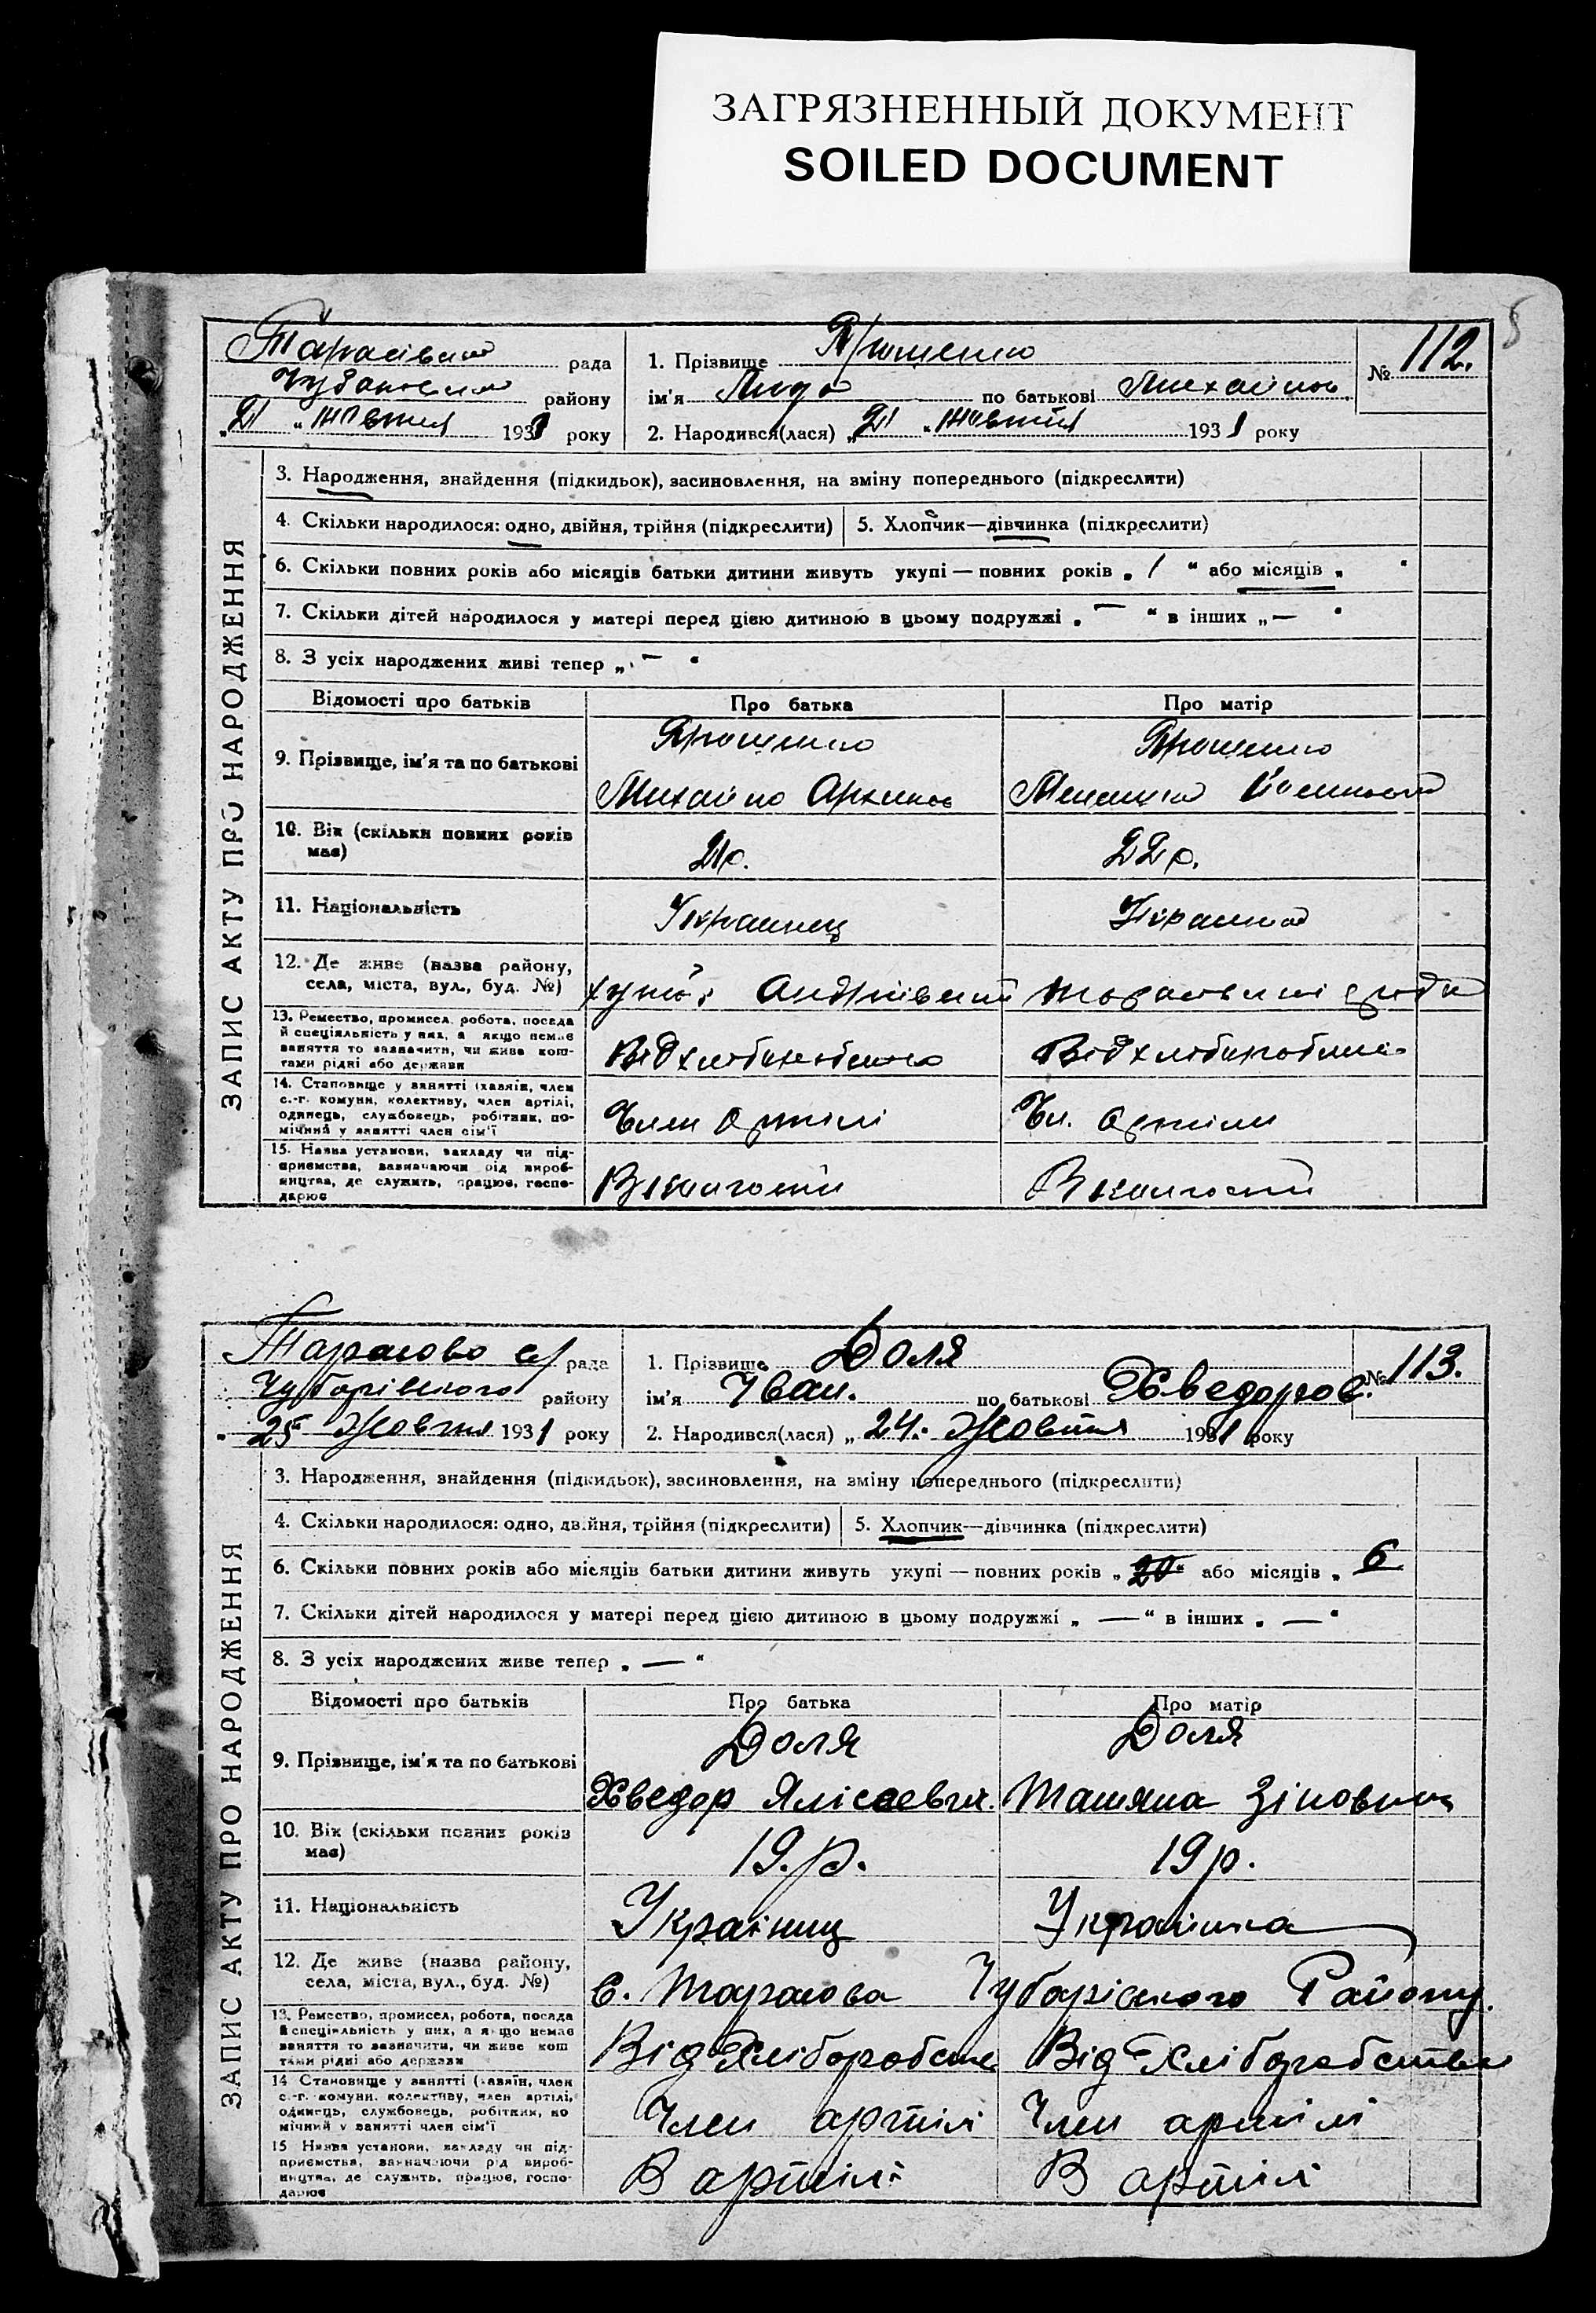 ЗАГРЯЗНЕННЫЙ ДОКУМЕНТ
SOILED DOCUMENT
рада
району
Жовтня 1931 року
1. Прізвище
ім'я Лида по батькові
2. Народився(лася) „21 " Жовтня 1931 року
№ 112.
ЗАПИС АКТУ ПРО НАРОДЖЕННЯ
3. Народження, знайдення (підкидьок), засиновлення, на зміну попереднього (підкреслити)
4. Скільки народилося: одно, двійня, трійня (підкреслити)
5. Хлопчик—дівчинка (підкреслити)
6. Скільки повних років або місяців батьки дитини живуть укупі — повних років „ 1 " або місяців „ "
7. Скільки дітей народилося у матері перед цією дитиною в цьому подружжі „ — " в інших „ — "
8. З усіх народжених живі тепер „ — "
Відомості про батьків
Про батька
Про матір
9. Прізвище, ім'я та по батькові
Михайло
10. Вік (скільки повних років
має)
21р.
22р.
11. Національність
12. Де живе (назва району,
села, міста, вул., буд. №)
13. Ремество, промисел, робота, посада
й спеціяльність у них, а якщо немає
заняття то зазначити, чи живе кош-
тами рідні або держави
14. Становище у занятті (хазяїн, член
с.-г. комуни, колективу, член артілі,
одинець, службовець, робітник, по-
мічний у занятті член сім'ї
Член артілі
Чл. артіли
15. Назва установи, закладу чи під-
приємства, зазначаючи рід вироб-
ництва, де служить, працює, госпо-
дарює
Тарасово с/рада
Чубарівского району
25 Жовтня 1931 року
1. Прізвище Доля
ім'я Іван. по батькові Хведоров.
2. Народився(лася) „ 24. Жовтня 1931 року
№ 113.
ЗАПИС АКТУ ПРО НАРОДЖЕННЯ
3. Народження, знайдення (підкидьок), засиновлення, на зміну попереднього (підкреслити)
4. Скільки народилося: одно, двійня, трійня (підкреслити)
5. Хлопчик—дівчинка (підкреслити)
6. Скільки повних років або місяців батьки дитини живуть укупі — повних років „ 20 " або місяців „ 6
7. Скільки дітей народилося у матері перед цією дитиною в цьому подружжі „ — " в інших „ — "
8. З усіх народжених живе тепер „ — "
Відомості про батьків
Про батька
Про матір
9. Прізвище, ім'я та по батькові
Доля
Доля
Хведор
Татяна
10. Вік (скільки повних років
має)
19.р.
19р.
11. Національність
Українец
Українка
12. Де живе (назва району,
села, міста, вул., буд. №)
с. Тарасова Чубарівского Району.
13. Ремество, промисел, робота, посада
й спеціяльність у них, а якщо немає
заняття то зазначити, чи живе кош
тами рідні або держави
Від Хліборобства
Від Хліборобства
14 Становище у занятті (хазяїн, член
с.-г. комуни, колективу, член артілі,
одинець, службовець, робітник, по
мічний у занятті член сім'ї
Член артілі
Член артілі
15 Назва установи, закладу чи під-
приємства, зазначаючи рід вироб-
ництва, де служить, працює, госпо-
дарює
В артілі
В артілі